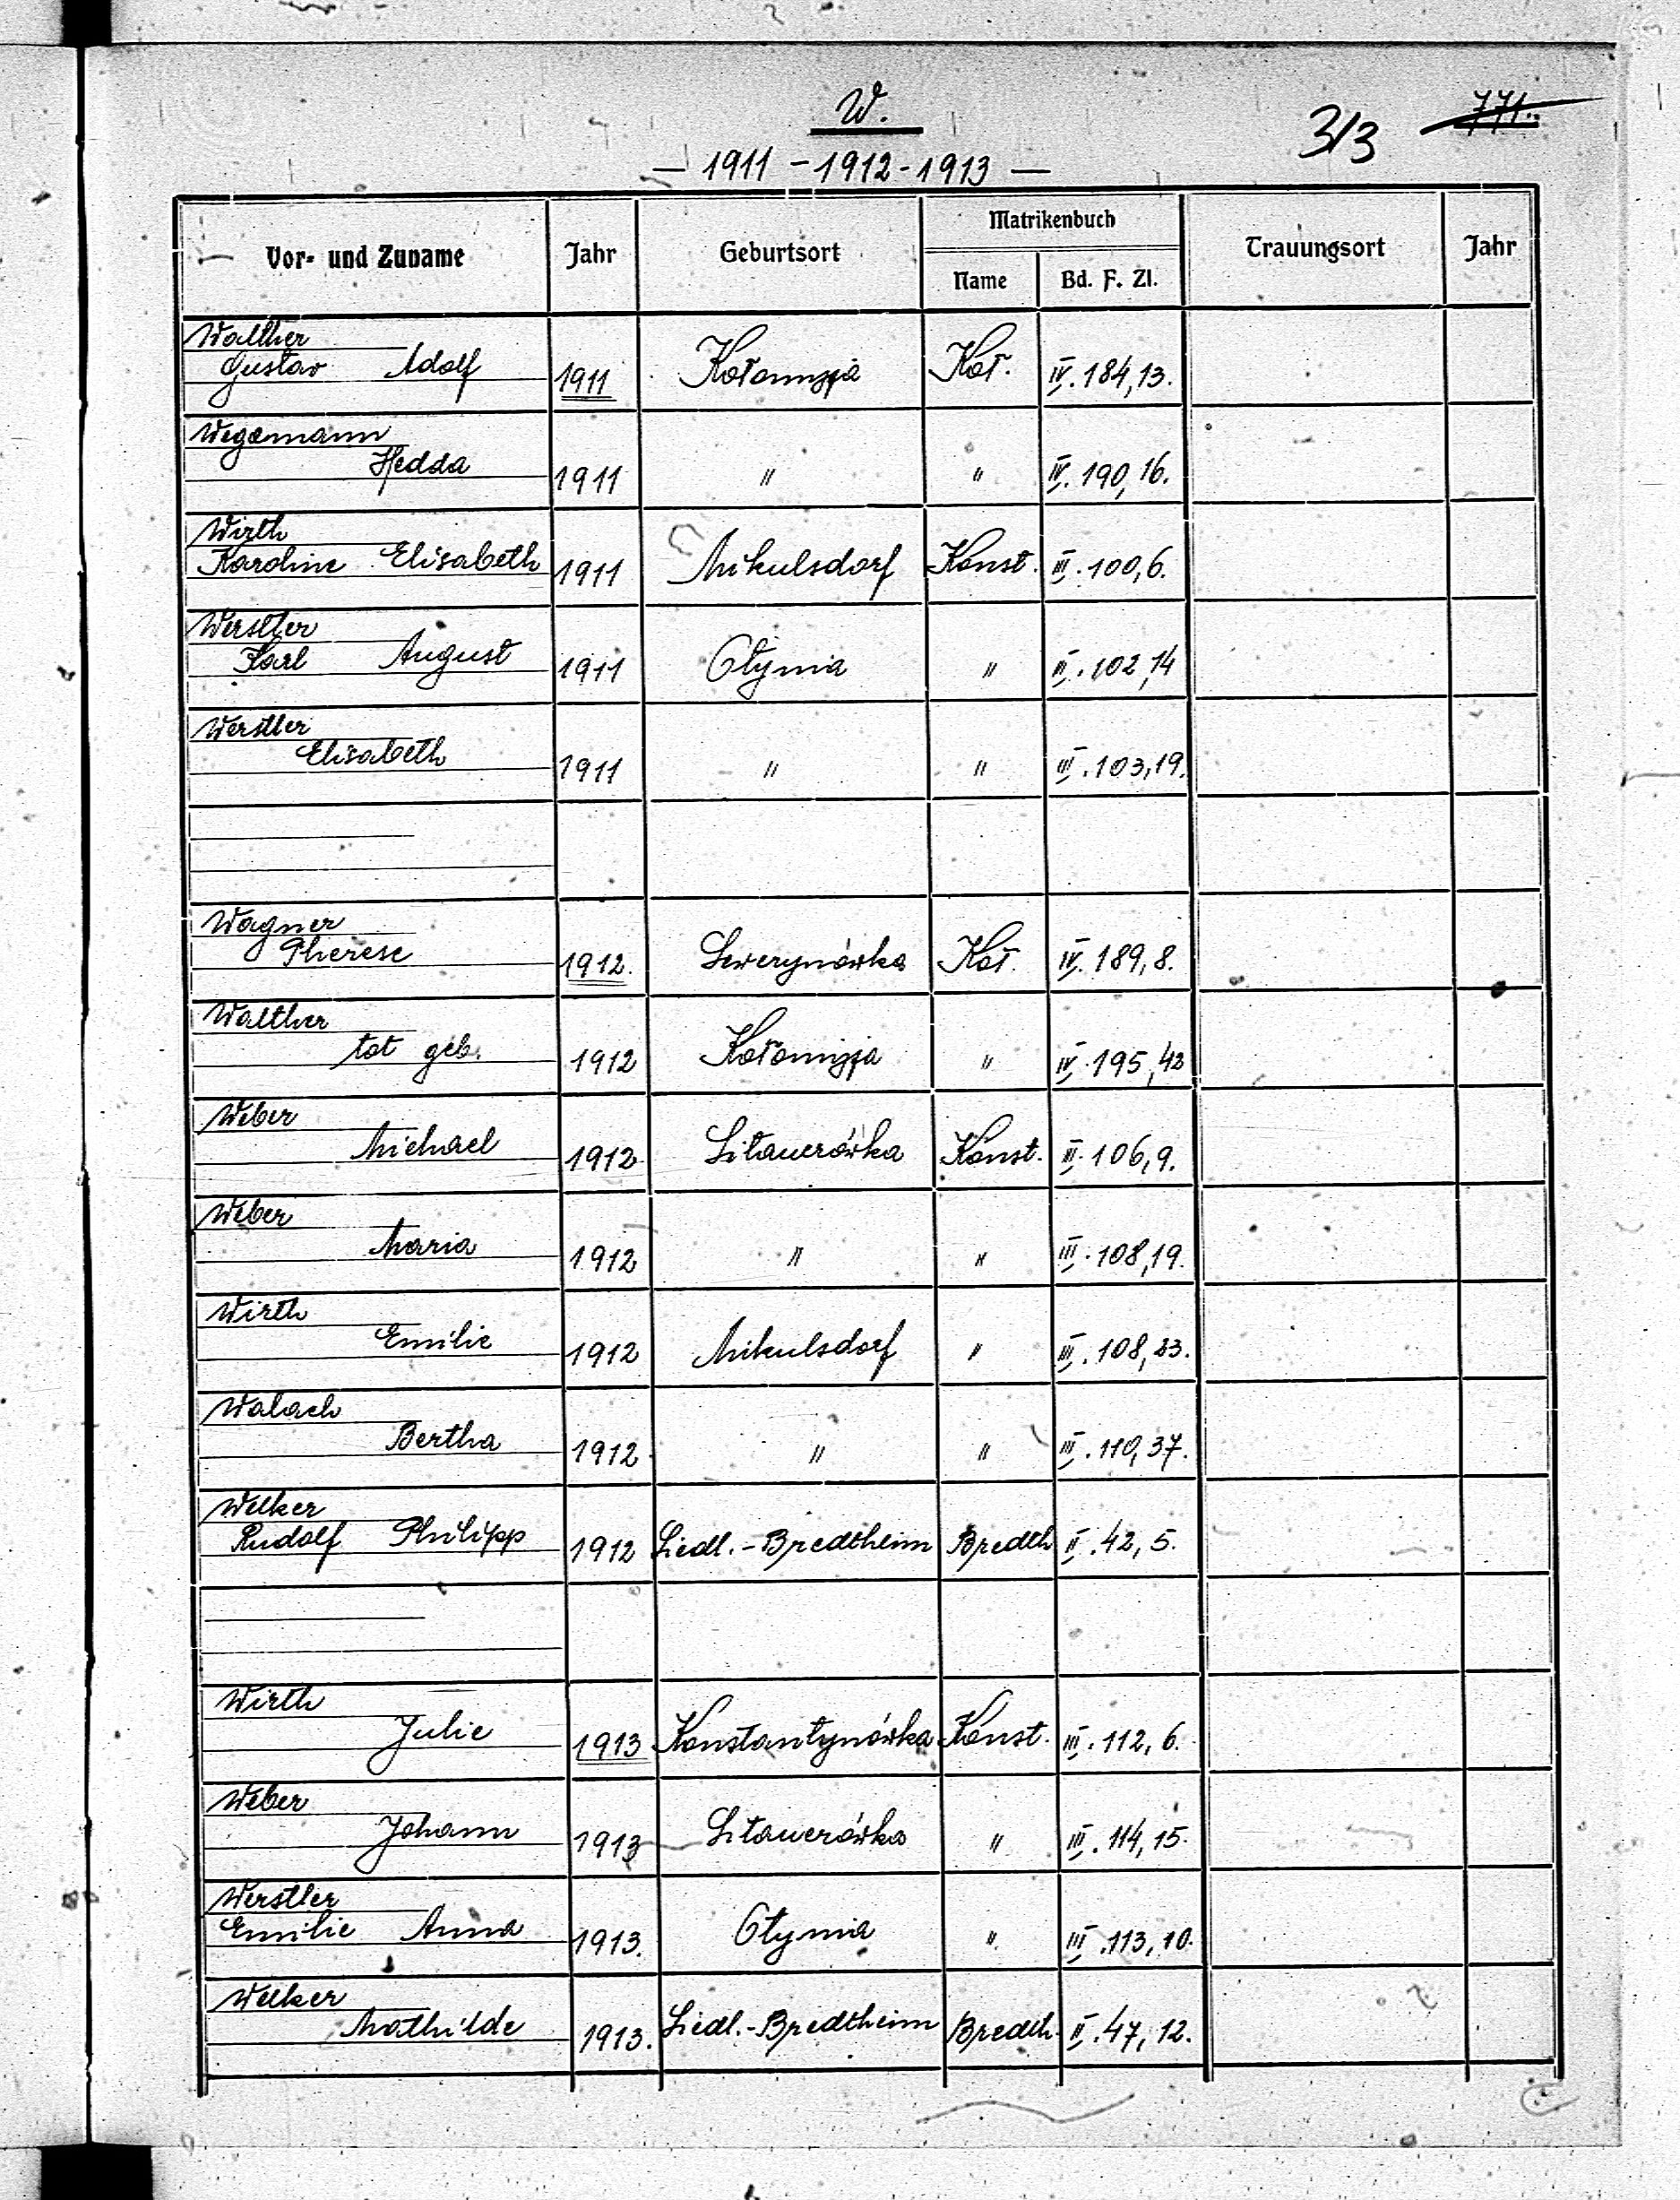 W.
313 771.
— 1911 - 1912 - 1913 —
Vor- und Zuname Jahr Geburtsort Matrikenbuch Trauungsort Jahr
Name Bd. F. Zl.
Walther
Gustav Adolf 1911 Kołomyja Koł. IV. 184, 13.
Wegemann
Hedda 1911 " " IV. 190, 16.
Wirth
Karoline Elisabeth 1911 Mikulsdorf Konst. III. 100, 6.
Werstler
Karl August 1911 Otynia " III. 102, 14
Werstler
Elisabeth 1911 " " III. 103, 19.
Wagner
Therese 1912. Sewerynówka Koł. IV. 189, 8.
Walther
tot geb. 1912 Kołomyja " IV. 195, 42
Weber
Michael 1912 Sitauerówka Konst. III. 106, 9.
Weber
Maria 1912 " " III. 108, 19.
Wirth
Emilie 1912 Mikulsdorf " III. 108, 23.
Walach
Bertha 1912 " " III. 110, 37.
Welker
Rudolf Philipp 1912 Siedl.-Bredtheim Bredth II. 42, 5.
Wirth
Julie 1913 Konstantynówka Konst. III. 112, 6.
Weber
Johann 1913 Sitauerówka " III. 114, 15.
Werstler
Emilie Anna 1913. Otynia " III. 113, 10.
Welker
Mathilde 1913. Siedl.-Bredtheim Bredth. II. 47, 12.